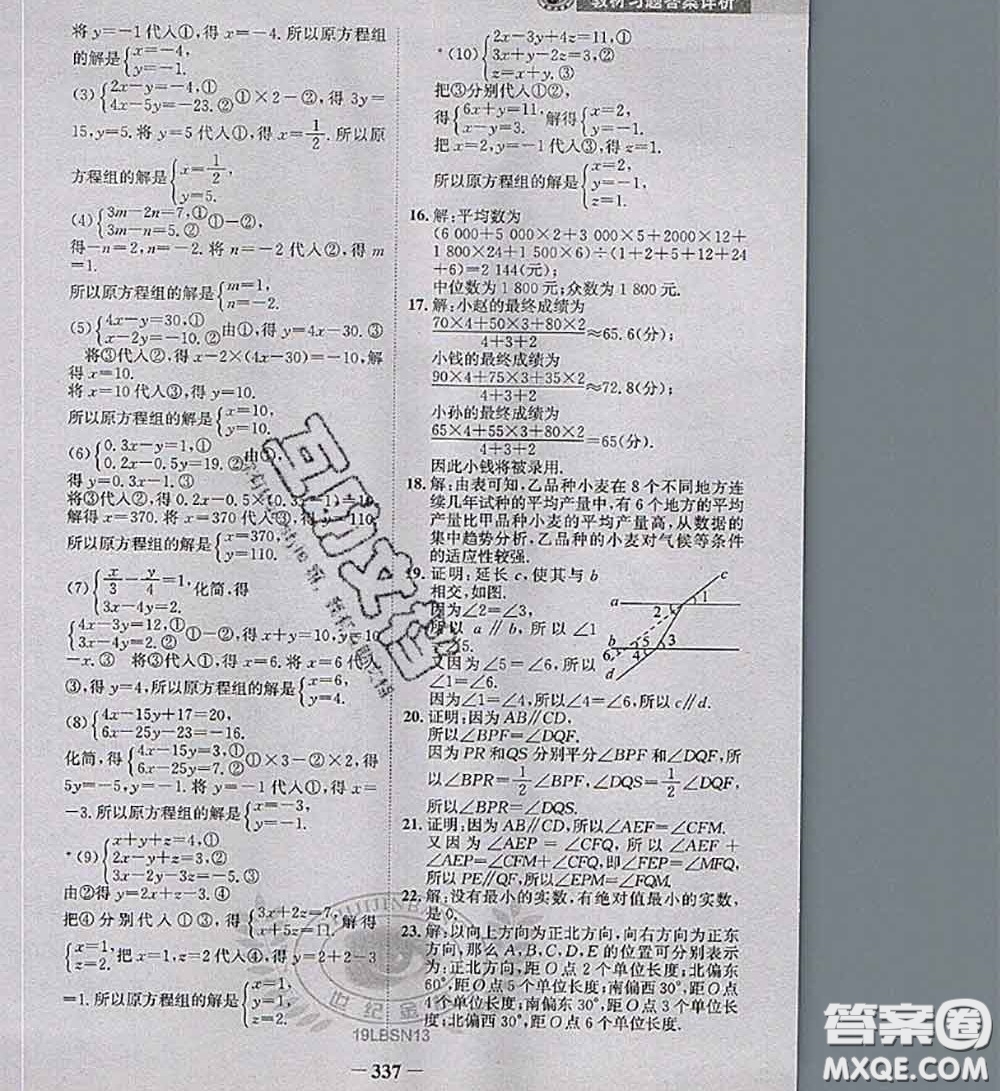 教材习题答案详析
将 y=-1代入①,得 x=-4. 所以原方程组
的解是{x=-4, y=-1.
(3){2x-y=-4,① 4x-5y=-23.② ①×2-②,得 3y=
15,y=5. 将 y=5代入①,得 x=1/2. 所以原
方程组的解是{x=1/2, y=5.
(4){3m-2n=7,① 3m-n=5.② ①-②,
得-n=2,n=-2. 将 n=-2 代入②,得 m
=1.
所以原方程组的解是{m=1, n=-2.
(5){4x-y=30,① x-2y=-10.② 由①,得 y=4x-30. ③
将③代入②,得 x-2×(4x-30)=-10,解
得 x=10.
将 x=10代入③,得 y=10.
所以原方程组的解是{x=10, y=10.
(6){0.3x-y=1,① 0.2x-0.5y=19.② 由①,
得 y=0.3x-1.③
将③代入②,得 0.2x-0.5×(0.3x-1)=19,
解得 x=370. 将 x=370代入③,得 y=110.
所以原方程组的解是{x=370, y=110.
(7){x/3-y/4=1, 3x-4y=2. 化简,得
{4x-3y=12,① 3x-4y=2.② ①-②,得 x+y=10,y=10
-x. ③ 将③代入①,得 x=6. 将 x=6代入
③,得 y=4,所以原方程组的解是{x=6, y=4.
(8){4x-15y+17=20, 6x-25y-23=0.
化简,得{4x-15y=3,① 6x-25y=23.② ①×3-②×2,得
5y=-15,y=-3. 将 y=-3代入①,得 x=
-3. 所以原方程组的解是{x=-3, y=-3.
*(9){x+y+z=4,① 2x-y=-z,② 3x-2y-z=-3.③
由②得 y=2x+z. ④
把④分别代入①③,得{3x+2z=7, x+5z=11. 解得
{x=1, z=2. 把 x=1,z=2代入④,得 y=2+2-3
=1. 所以原方程组的解是{x=1, y=1, z=2.
*(10){2x-3y+4z=11,① 3x+y-2z=3,② z=x+y.③
把③分别代入①②,
得{6x+y=11, x-y=3. 解得{x=2, y=-1.
把 x=2,y=-1代入③,得 z=1.
所以原方程组的解是{x=2, y=-1, z=1.
16. 解:平均数为
(6 000+5 000×2+3 000×5+2000×12+
1 800×24+1 500×6)÷(1+2+5+12+24
+6)=2 144(元);
中位数为 1 800 元;众数为 1 800 元.
17. 解:小赵的最终成绩为
(70×4+50×3+80×2)/(4+3+2)≈65.6(分);
小钱的最终成绩为
(90×4+75×3+35×2)/(4+3+2)≈72.8(分);
小孙的最终成绩为
(65×4+55×3+80×2)/(4+3+2)=65(分).
因此小钱将被录用.
18. 解:由表可知,乙品种小麦在 8 个不同地方连
续几年试种的平均产量中,有 6 个地方的平均
产量比甲品种小麦的平均产量高,从数据的
集中趋势分析,乙品种的小麦对气候等条件
的适应性较强.
19. 证明:延长 c,使其与 b
相交,如图.
因为∠2=∠3,
所以 a∥b,所以∠1
=∠5.
又因为∠5=∠6,所以
∠1=∠6.
因为∠1=∠4,所以∠4=∠6,所以 c∥d.
c
a
1
2
b
5
3
6
4
d
20. 证明:因为 AB∥CD,
所以∠BPF=∠DQF.
因为 PR和 QS 分别平分∠BPF和∠DQF,所
以∠BPR=1/2∠BPF,∠DQS=1/2∠DQF,
所以∠BPR=∠DQS.
21. 证明:因为 AB∥CD,所以∠AEF=∠CFM.
又因为∠AEP=∠CFQ,所以∠AEF+
∠AEP=∠CFM+∠CFQ,即∠FEP=∠MFQ,
所以 PE∥QF,所以∠EPM=∠FQM.
22. 解:没有最小的实数,有绝对值最小的实数,
是0.
23. 解:以向上方向为正北方向,向右方向为正东
方向,那么 A,B,C,D,E 的位置可分别表示
为:正北方向,距O点 2 个单位长度;北偏东
60°,距O点 5 个单位长度;南偏西 30°,距O点
4 个单位长度;南偏东 30°,距O点3个单位长
度;北偏西 30°,距O点 6 个单位长度.
世纪金榜
19LBSN13
— 337 —
答案圈
MXQE.COM